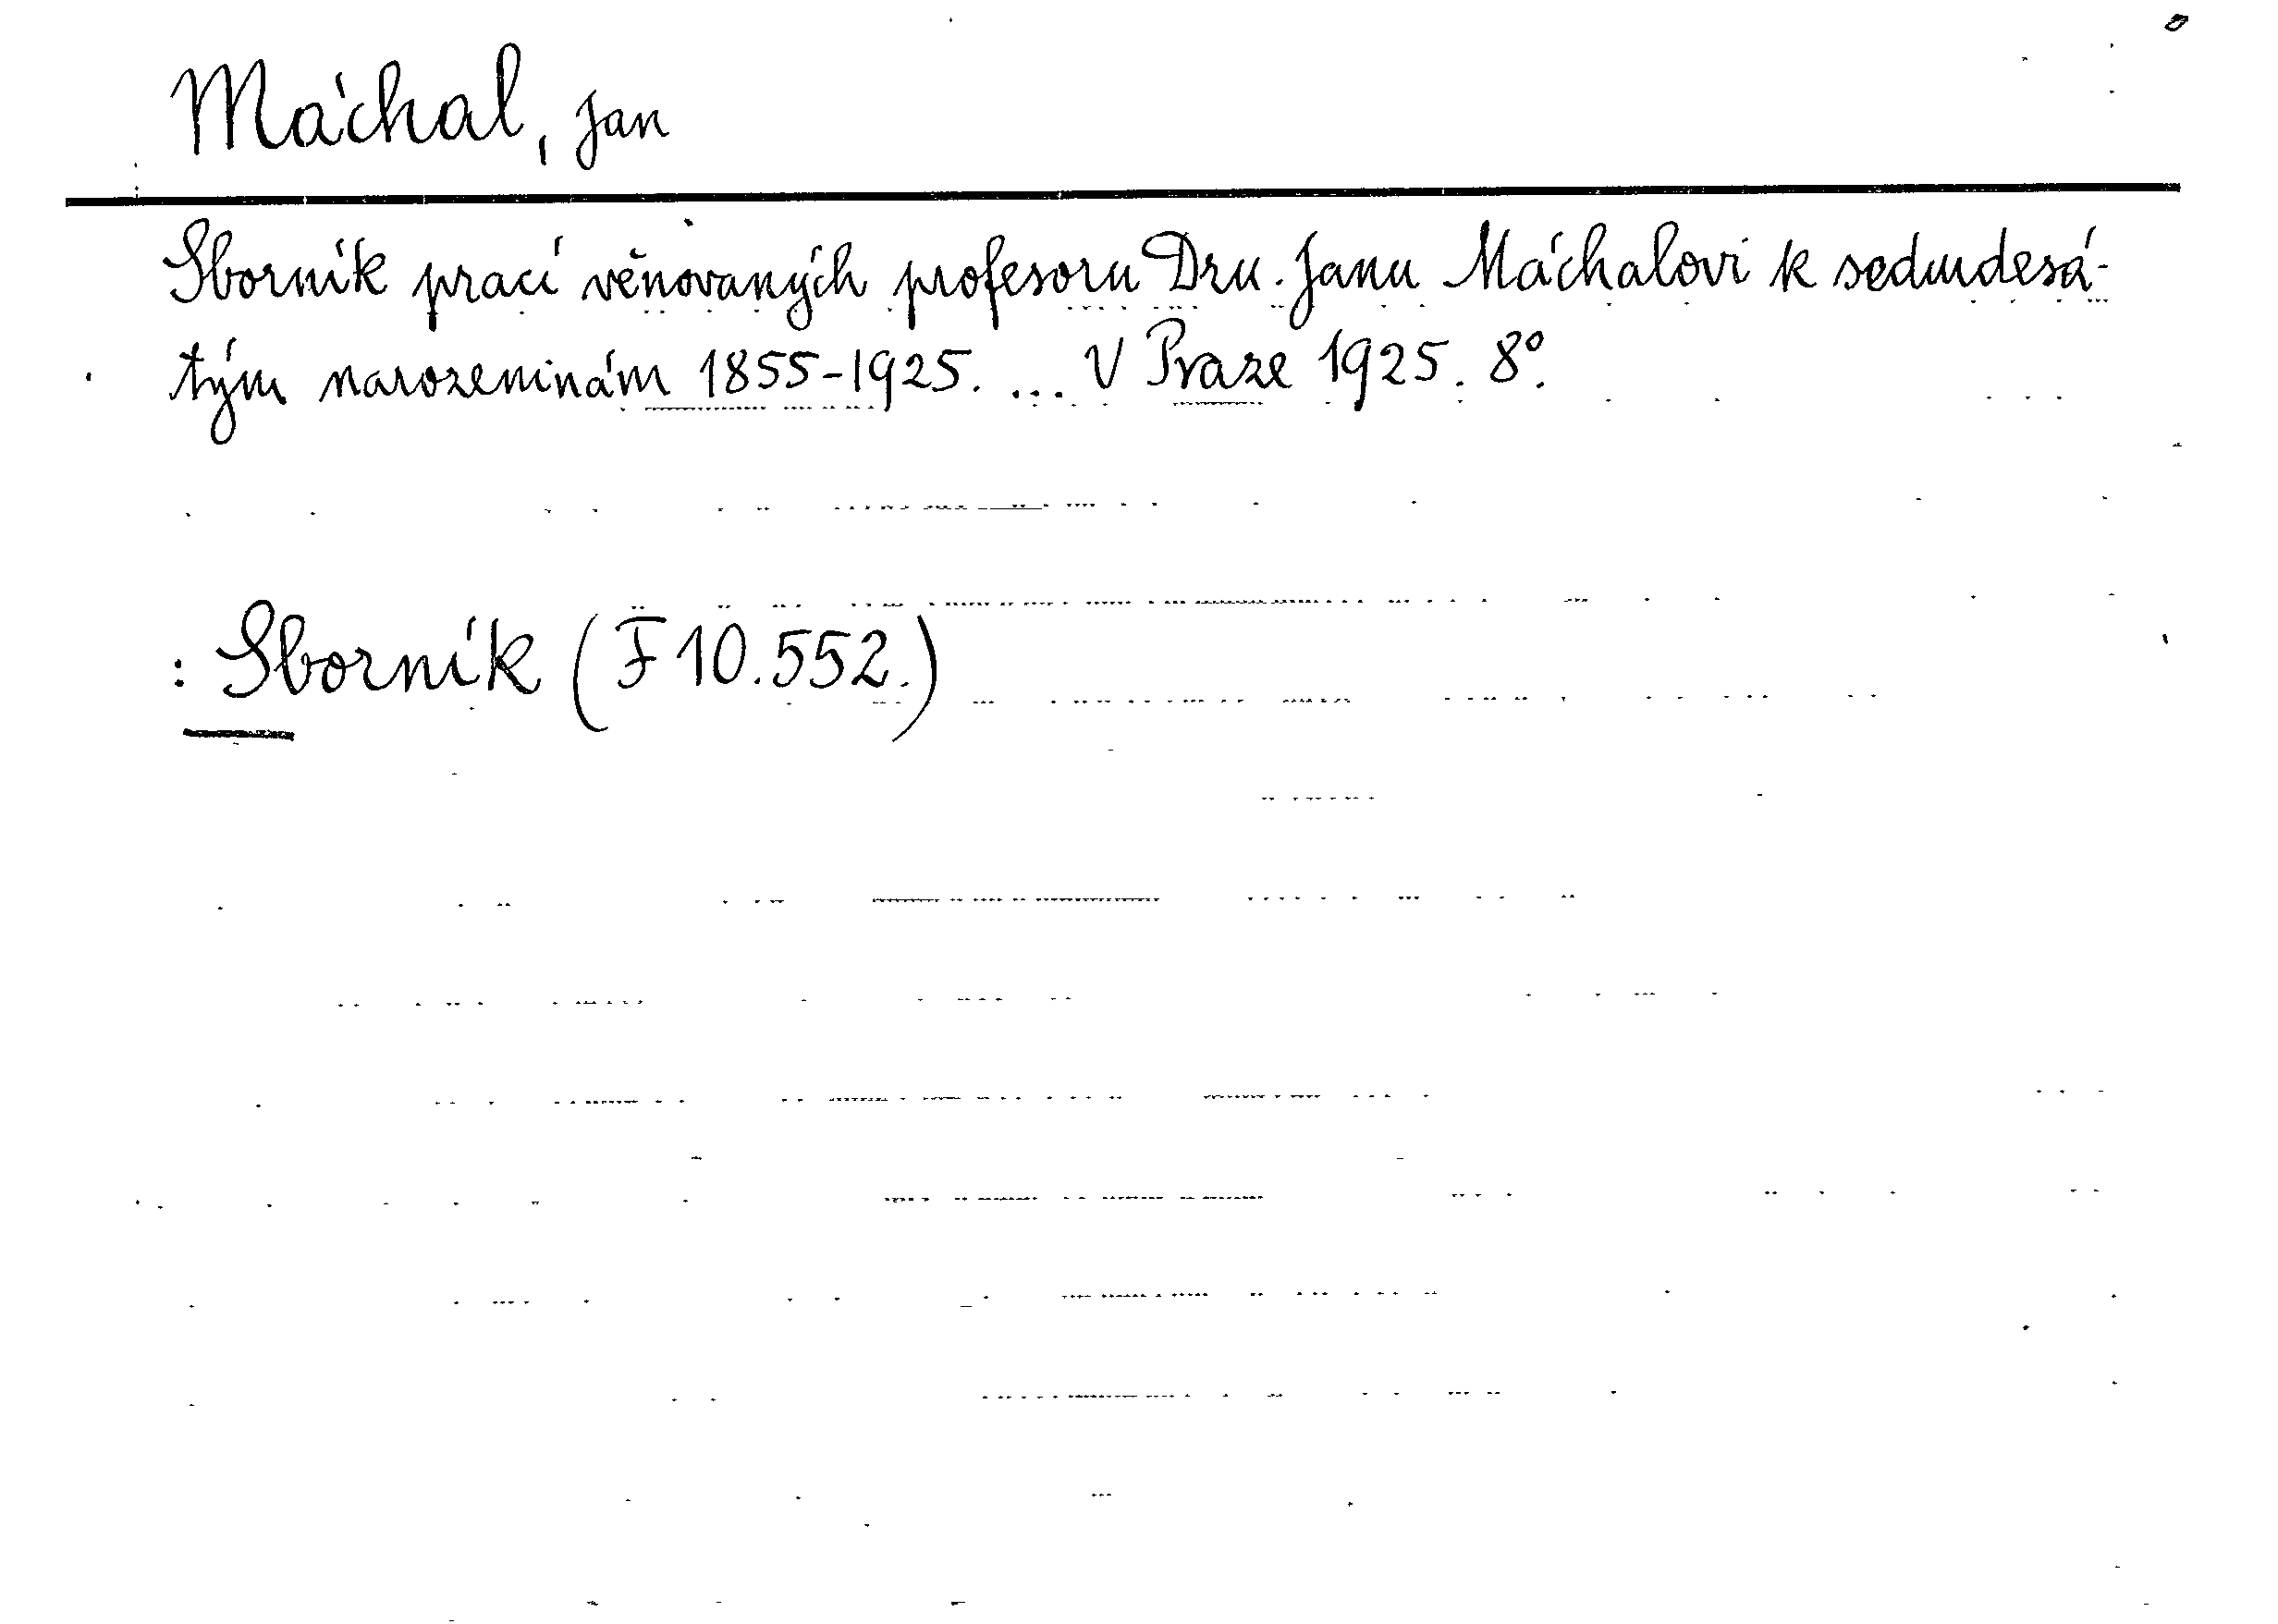 Máchal, Jan
Sborník prací věnovaných profesoru Dru. Janu Máchalovi k sedmdesá-
tým narozeninám 1855-1925. ... V Praze 1925. 8°.
: Sborník (F 10.552.)